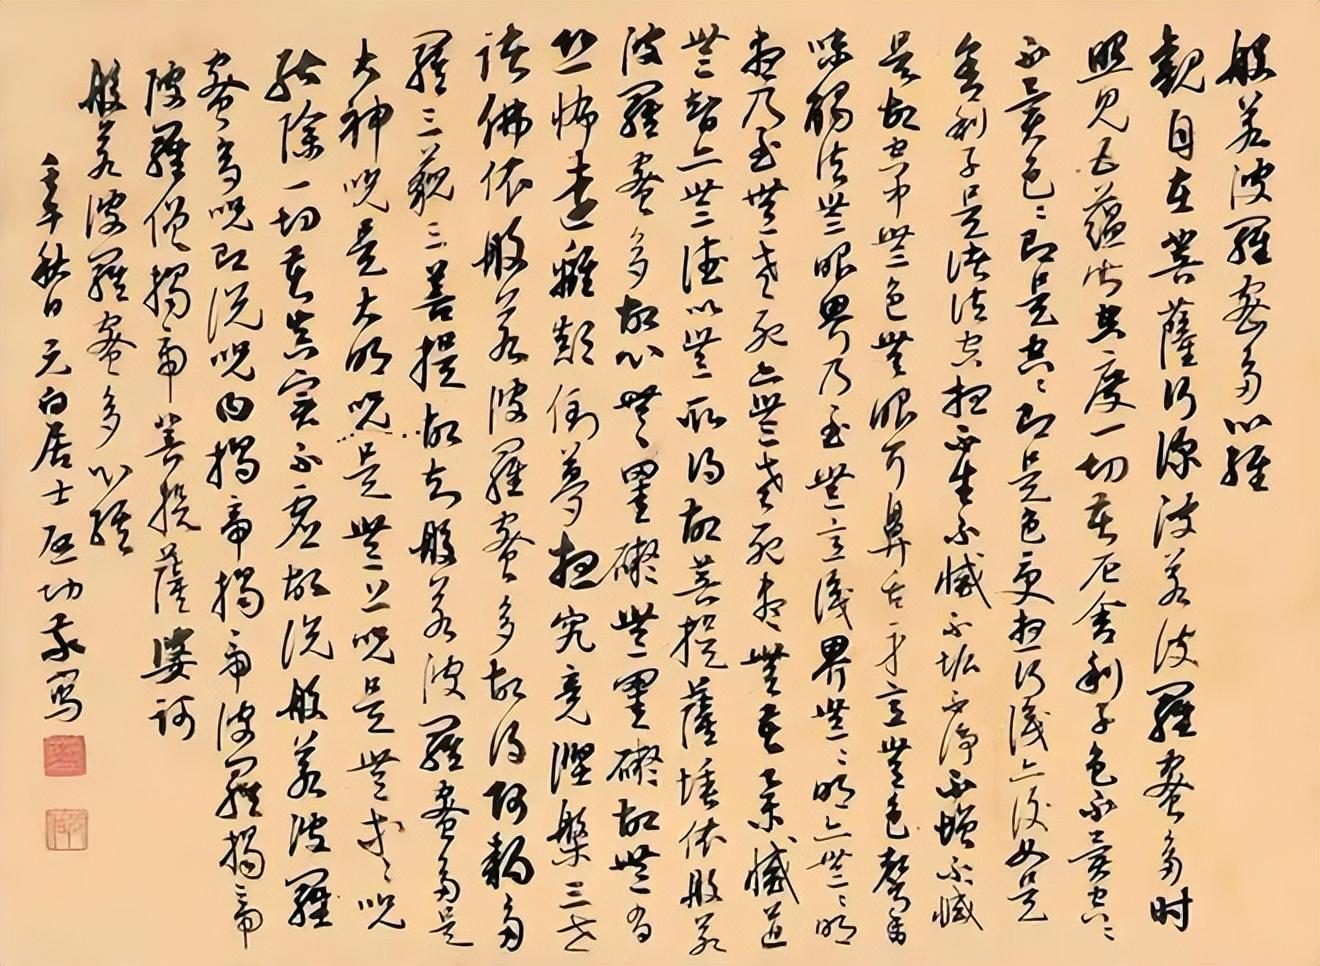 般若波羅蜜多心經
觀自在菩薩行深波若波羅蜜多时
照見五蘊皆空度一切苦厄舍利子色不異空〻
不異色〻即是空〻即是色受想行識亦復如是
舍利子是諸法空相不生不滅不垢不淨不增不減
是故空中無色無眼耳鼻舌身意無色聲香
味觸法無眼界乃至無意識界無〻明亦無〻明
盡乃至無老死亦無老死盡無苦集滅道
無智亦無得以無所得故菩提薩埵依般若
波羅蜜多故心無〻罣礙無罣礙故無有
恐怖遠離顛倒夢想究竟涅槃三世
諸佛依般若波羅蜜多故得阿耨多
羅三藐三菩提故知般若波羅蜜多是
大神呪是大明呪是無上呪是無等〻呪
能除一切苦真實不虛故說般若波羅
蜜多呪即說呪曰揭帝揭帝波羅揭帝
波羅僧揭帝菩提薩婆訶
般若波羅蜜多心經
秋日元白居士启功敬寫